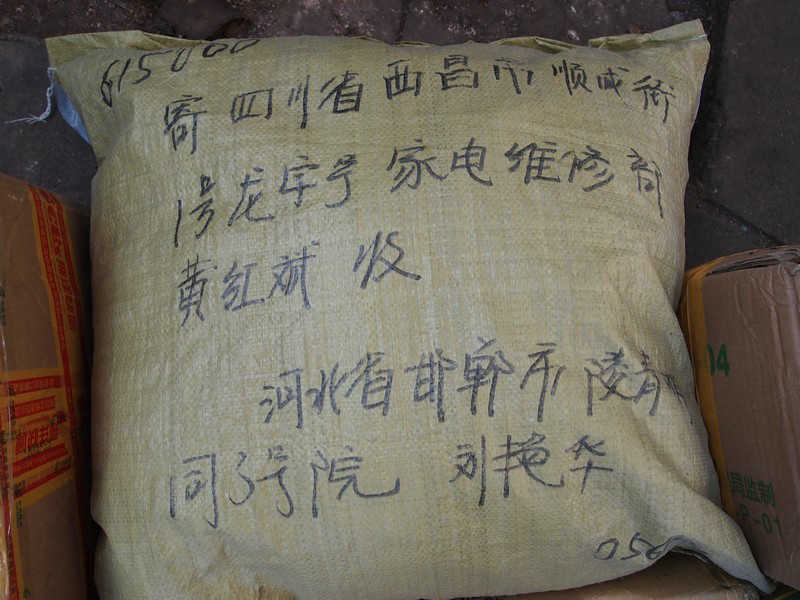 615000
寄 四川省西昌市顺城街
号龙字号 家电维修部
黄红斌 收
河北省邯郸市陵
同3号院 刘艳华
056
04
监制
P-01